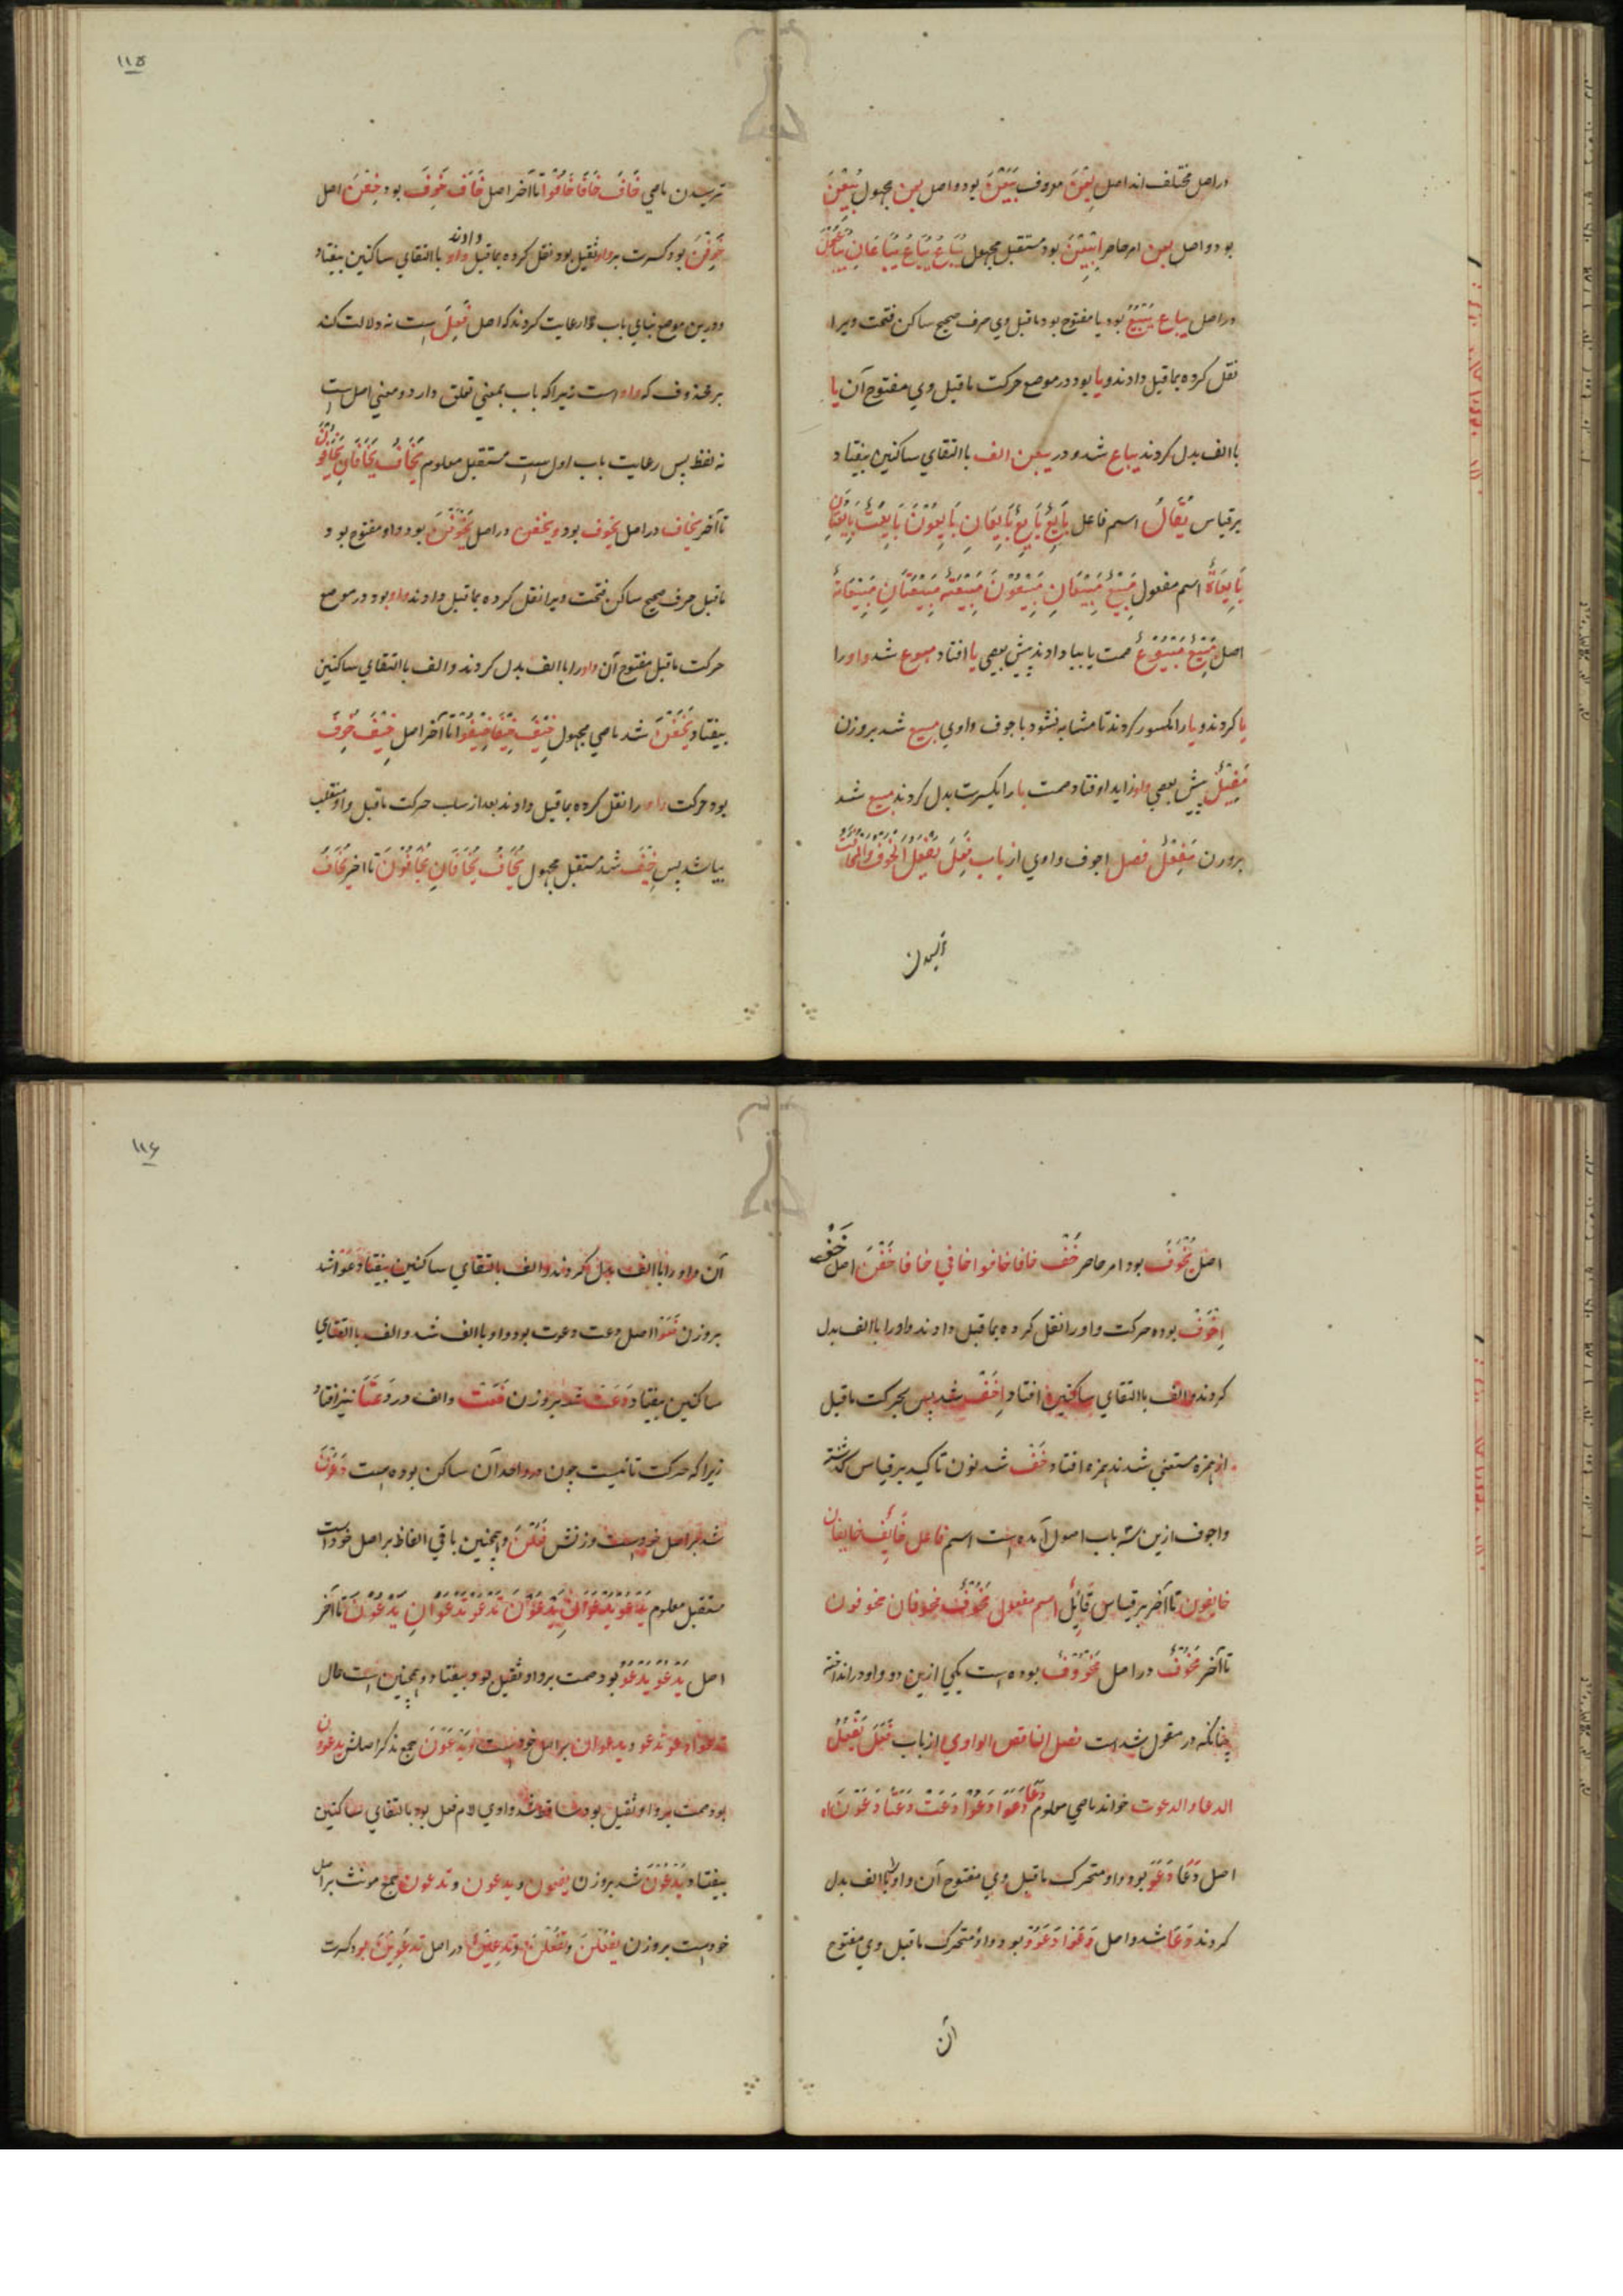 در اصل مختلف اند اصل بِعْنَ معروف بَيَعْنَ بود و اصل بعن مجهول بُيِعْنَ
بود و اصل بعن امر حاضر اِبْيِعْنَ بود مستقبل مجهول يُبَاعُ يُبَاعُ يُبَاعَانِ
در اصل يباع يُبْيَعُ بود يا مفتوح بود ماقبل وي حرف صحيح ساكن فتحت ويرا
نقل كرده بماقبل دادند و يا بود در موضع حركت ماقبل وي مفتوح آن يا
با الف بدل كردند يباع شد و در يبعن الف با التقاي ساكنين بيفتاد
برقياس يُقَالُ اسم فاعل بَايِعٌ بَايِعٌ بَايِعَانِ بَايِعُوْنَ بَايِعَتٌ بَايِعَتَانِ
بَايِعَاةٌ اسم مفعول مَبِيْعٌ مَبِيْعَانِ مَبِيْعُوْنَ مَبِيْعَتٌ مَبِيْعَتَانِ مَبِيْعَاةٌ
اصل مَبِيْعٌ مَبْيُوْعٌ ضمت يا ببا دادند پيش بعضي يا افتاد مبوع شد واو را
يا كردند و با را مكسور كردند تا مشابه نشود با جوف واوي مبيع شد بروزن
مَفِيْلٌ پيش بعضي واو زايد افتاد ضمت با را بكسرت بدل كردند مبيع شد
بروزن مَفِعْلٌ فصل اجوف واوي از باب فَعِلَ يَفْعَلُ اَلْخَوْفُ وَالْمَخَافَتُ
ترسيدن
ترسيدن ماضي خَافَ خَافَا خَافُوْا تا آخر اصل خَافَ خَوِفَ بود خِفْنَ اصل
خَوِفْنَ بود كسرت بر واو ثقيل بود نقل كرده بماقبل دادند واو با التقاي ساكنين بيفتاد
و درين موضع بناي باب را رعايت كردند كه اصل فَعِلَ است نه دلالت كند
بر محذوف كه واو است زيرا كه باب بمعني تعلق دارد و معني اصل است
نه لفظ پس رعايت باب اولي است مستقبل معلوم يَخَافُ يَخَافَانِ يَخَافُوْنَ
تا آخر يخاف در اصل يخوف بود و يخفن در اصل يَخْوَفْنَ بود واو مفتوح بود و
ماقبل حرف صحيح ساكن فتحت ويرا نقل كرده بماقبل دادند واو بود در موضع
حركت ماقبل مفتوح آن واو را با الف بدل كردند و الف با التقاي ساكنين
بيفتاد يَخَفْنَ شد ماضي مجهول خِيْفَ خِيْفَا خِيْفُوْا تا آخر اصل خِيْفَ خُوِفَ
بود حركت واو را نقل كرده بماقبل دادند بعد از سلب حركت ماقبل واو منقلب
بيا شد پس خِيْفَ شد مستقبل مجهول يُخَافُ يُخَافَانِ يُخَافُوْنَ تا آخر يُخَافُ
۱۱۵
اصل يُخْوَفُ بود امر حاضر خَفْ خافا خافوا خافي خافا خَفْنَ اصل خَفْ
اِخْوَفْ بوده حركت واو را نقل كرده بماقبل دادند واو را با الف بدل
كردند و الف با التقاي ساكنين افتاد اِخَفْ شد پس بحركت ماقبل
از همزه مستغني شدند همزه افتاد خَفْ شد نون تاكيد برقياس گذشته
و اجوف ازين سه باب اصول آمده است اسم فاعل خَايِفٌ خايفان
خايفون تا آخر برقياس قَايِلٌ اسم مفعول مَخُوْفٌ مخوفان مخوفون
تا آخر مَخُوْفٌ در اصل مَخْوُوْفٌ بوده است يكي ازين دو واو در انداخته
چنانكه در مقول شد است فصل الناقص الواوي از باب فَعَلَ يَفْعُلُ
الدعا و الدعوت خواندن ماضي معلوم دَعَا دَعَوَا دَعَوْا دَعَتْ دَعَتَا دَعَوْنَ
اصل دَعَا دَعَوَ بود واو متحرك ماقبل وي مفتوح آن واو را با الف بدل
كردند دَعَا شد و اصل دَعَوْا دَعَوُوْا بود واو متحرك ماقبل وي مفتوح
آن
آن واو را با الف بدل كردند و الف با التقاي ساكنين بيفتاد دَعَوْا شد
بروزن فَعَوْا اصل دعت دعوت بود واو با الف شد و الف با التقاي
ساكنين بيفتاد دَعَتْ شد بروزن فَعَتْ و الف در دَعَتَا نيز افتاد
زيرا كه حركت تانيث چون در واحد آن ساكن بوده است دَعَوْنَ
شد بر اصل خودست وزنش فَعَلْنَ و همچنين باقي الفاظ بر اصل خود است
مستقبل معلوم يَدْعُوْ يَدْعُوَانِ يَدْعُوْنَ تَدْعُوْ تَدْعُوَانِ يَدْعُوْنَ تا آخر
اصل يَدْعُوْ يَدْعُوُ بود ضمت بر واو ثقيل بود بيفتاد و همچنين است حال
تدعو ادعو ندعو و يدعوان بر اصل خودست و يَدْعُوْنَ جمع مذكر اصلش يدعوون
بود ضمت بر واو ثقيل بود ساقط شد واوي لام فعل بود بالتقاي ساكنين
بيفتاد يَدْعُوْنَ شد بروزن يفعون و يدعون و تدعون جمع مونث بر اصل
خودست بروزن يَفْعُلْنَ و تَفْعُلْنَ و تَدْعِيْنَ در اصل تَدْعُوِيْنَ بود كسرت
۱۱۶